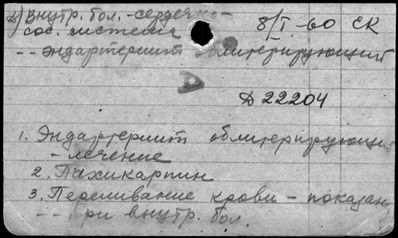 2) внутр. бол. - сердечно-
сос. система
8/I-60 СК
-- эндартериит облитерирующий
Д 22204
1. Эндартериит облитерирующ.
- лечение
2. Пахикарпин
3. Переливание крови - показан.
-- при внутр. бол.